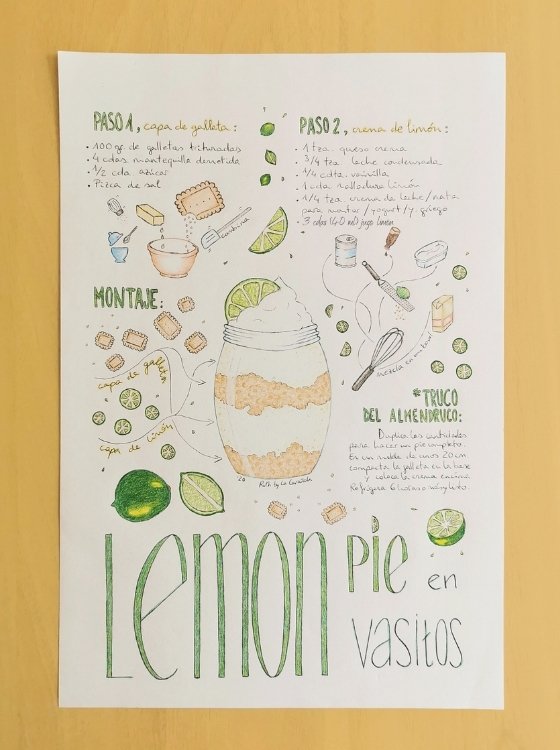 PASO 1, capa de galleta:
· 100 gr. de galletas trituradas
· 4 cdas mantequilla derretida
· 1/2 cda azúcar
· Pizca de sal
combina
PASO 2, crema de limón:
· 1 tza. queso crema
· 3/4 tza. leche condensada
· 1/4 cdta. vainilla
· 1 cda ralladura limón
· 1/4 tza. crema de leche/nata
para montar/yogurt/y griego
· 3 cdas (40 ml) jugo limón
mezcla en
MONTAJE:
capa de galleta
capa de limón
*TRUCO
DEL ALMENDRUCO:
Duplica las cantidades
para hacer un pie completo.
En un molde de unos 20 cm
compacta la galleta en la base
y coloca la crema encima.
Refrigera 6 horas o muy listo.
Ruth by La
LEMON PIE en
vasitos